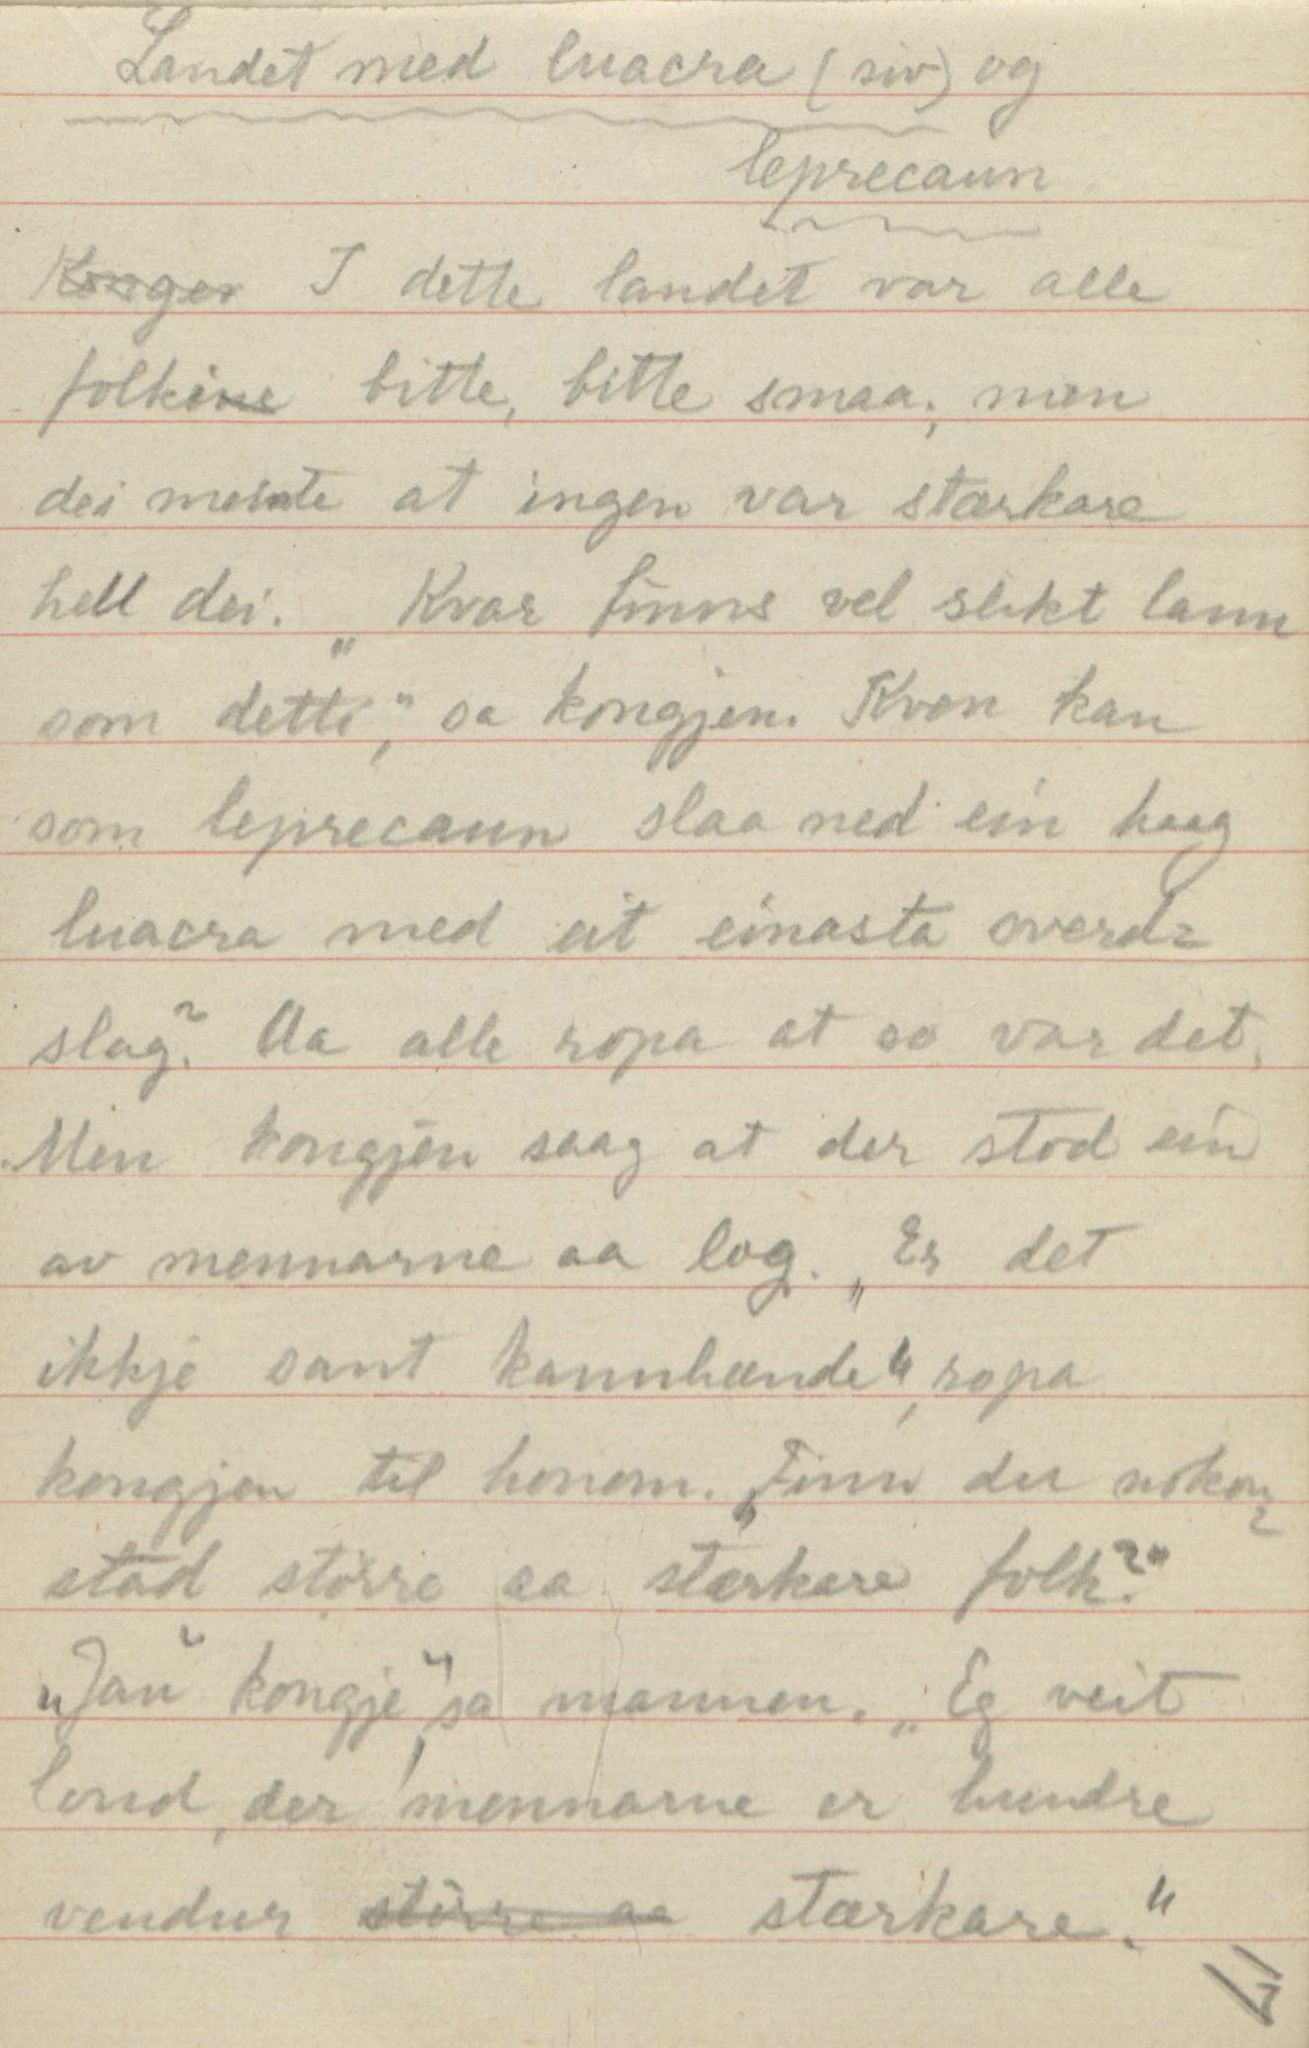 Landet med luacra (siv) og
leprecaun
Konger I dette landet var alle
folkine bitte, bitte smaa; men
dei meinte at ingen var stærkare
hell dei. „Kvar finns vel slikt lann
som dette", sa kongjen. Kven kan
som leprecaun slaa ned ein haag
luacra med eit einasta sverd=
slag? Aa alle ropa at so var det.
Men kongjen saag at der stod ein
av mennarne aa log. „Er det
ikkje sant kannhænde", ropa
kongjen til honom. „Finn du nokon=
stad större aa stærkare folk?"
„Jau kongje", sa mannen. „Eg veit
lond, der mennarne er hundre
vendur större aa stærkare."